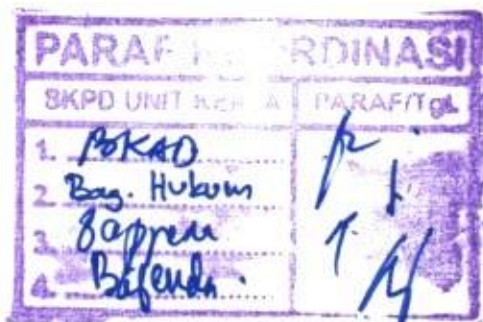 PARAF KOORDINASI
SKPD UNIT KERJA PARAF/Tgl.
1. BKAD
2. Bag. Hukum
3. Bappeda
4. Bapenda.